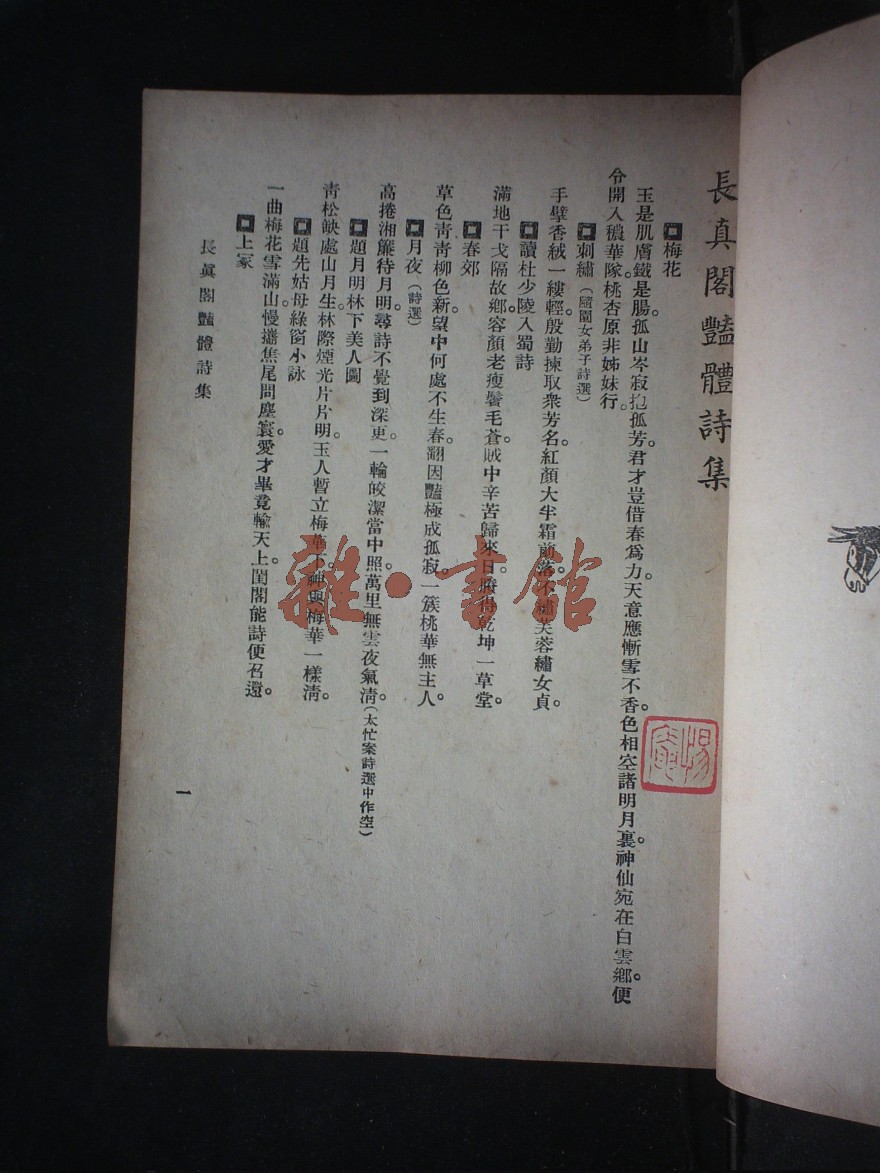 長真閣豔體詩集
梅花
玉是肌膚鐵是腸。孤山岑寂抱孤芳。君才豈借春爲力。天意應慚雪不香。色相空諸明月裏。神仙宛在白雲鄉。便
令開入穠華隊。桃杏原非姊妹行。
刺繡（隨園女弟子詩選）
手擘香絨一縷輕。殷勤揀取衆芳名。紅顏大半霜前落。不繡芙蓉繡女貞。
讀杜少陵入蜀詩
滿地干戈隔故鄉。容顏老瘦鬢毛蒼。賊中辛苦歸來日。賸得乾坤一草堂。
春郊
草色青青柳色新。望中何處不生春。翻因豔極成孤寂。一簇桃華無主人。
月夜（詩選）
高捲湘簾待月明。尋詩不覺到深更。一輪皎潔當中照。萬里無雲夜氣清。（太忙案詩選中作空）
題月明林下美人圖
青松缺處山月生。林際煙光片片明。玉人暫立梅華下。神與梅華一樣清。
題先姑母綠窗小詠
一曲梅花雪滿山。慢攜焦尾間塵寰。愛才畢竟輸天上。閨閣能詩便召還。
上冢
長眞閣豔體詩集
一
雜·書館